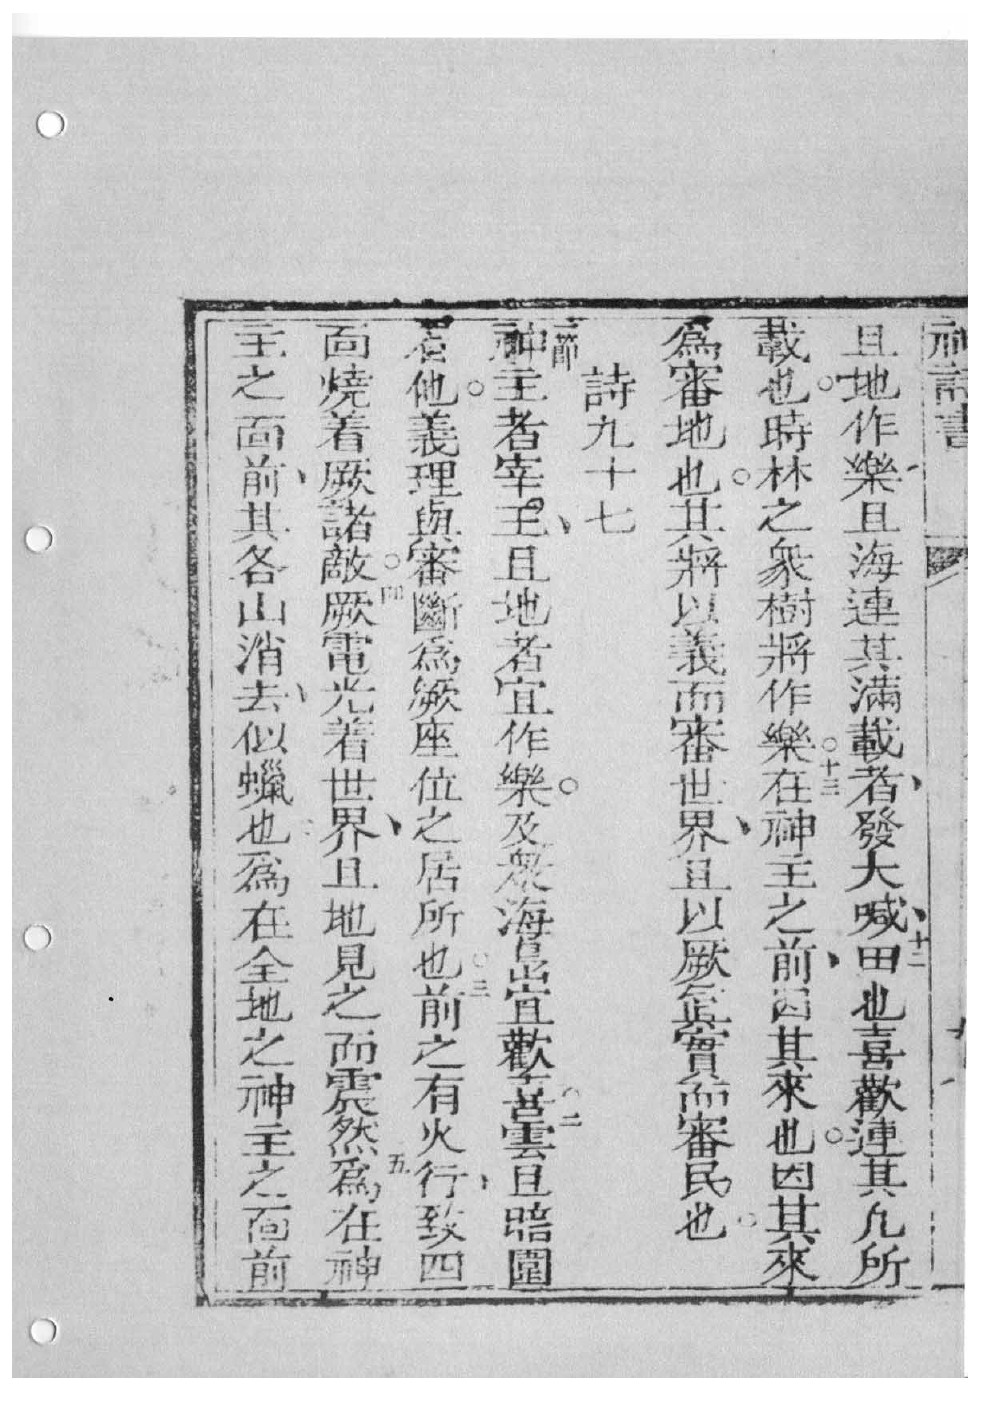 神詩書
且地作樂且海連其滿載者發大喊十二田也喜歡連其凡所
載也時林之衆樹將作樂十三在神主之前因其來也因其來
為審地也其將以義而審世界且以厥眞實而審民也
詩九十七
一節神主者宰王且地者宜作樂及衆海島宜歡喜二雲且暗圍
着他義理與審斷為厥座位之居所也三前之有火行致四
面燒着厥諸敵四厥電光着世界且地見之而震然五為在神
主之面前其各山消去似蠟也為在全地之神主之面前